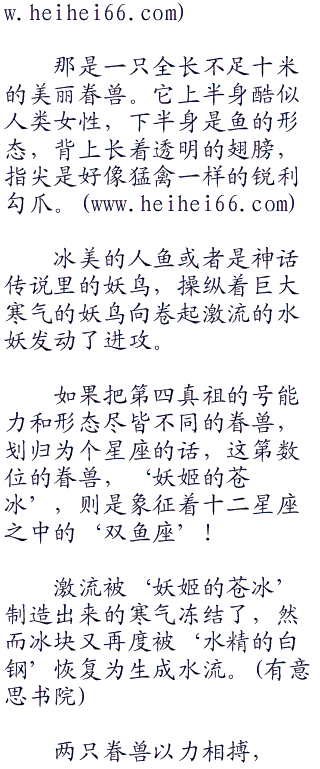 w.heihei66.com)
那是一只全长不足十米
的美丽眷兽。它上半身酷似
人类女性，下半身是鱼的形
态，背上长着透明的翅膀，
指尖是好像猛禽一样的锐利
勾爪。(www.heihei66.com)
冰美的人鱼或者是神话
传说里的妖鸟，操纵着巨大
寒气的妖鸟向卷起激流的水
妖发动了进攻。
如果把第四真祖的号能
力和形态尽皆不同的眷兽，
划归为个星座的话，这第数
位的眷兽，‘妖姬的苍
冰’，则是象征着十二星座
之中的‘双鱼座’！
激流被‘妖姬的苍冰’
制造出来的寒气冻结了，然
而冰块又再度被‘水精的白
钢’恢复为生成水流。(有意
思书院)
两只眷兽以力相搏，